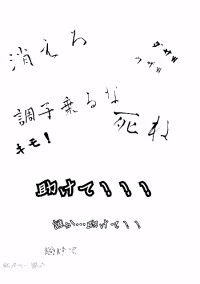 消えろ
ウザ
ウザ
調子乗るな
死ね
キモ!
助けて！！！
誰か…助けて！！
助けて